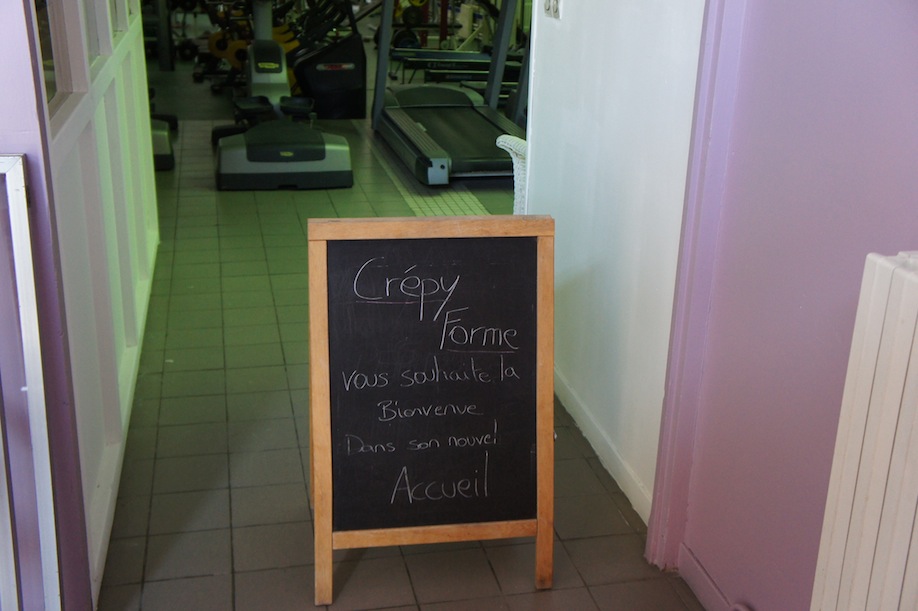 Crépy
Forme
vous souhaite la
Bienvenue
Dans son nouvel
Accueil